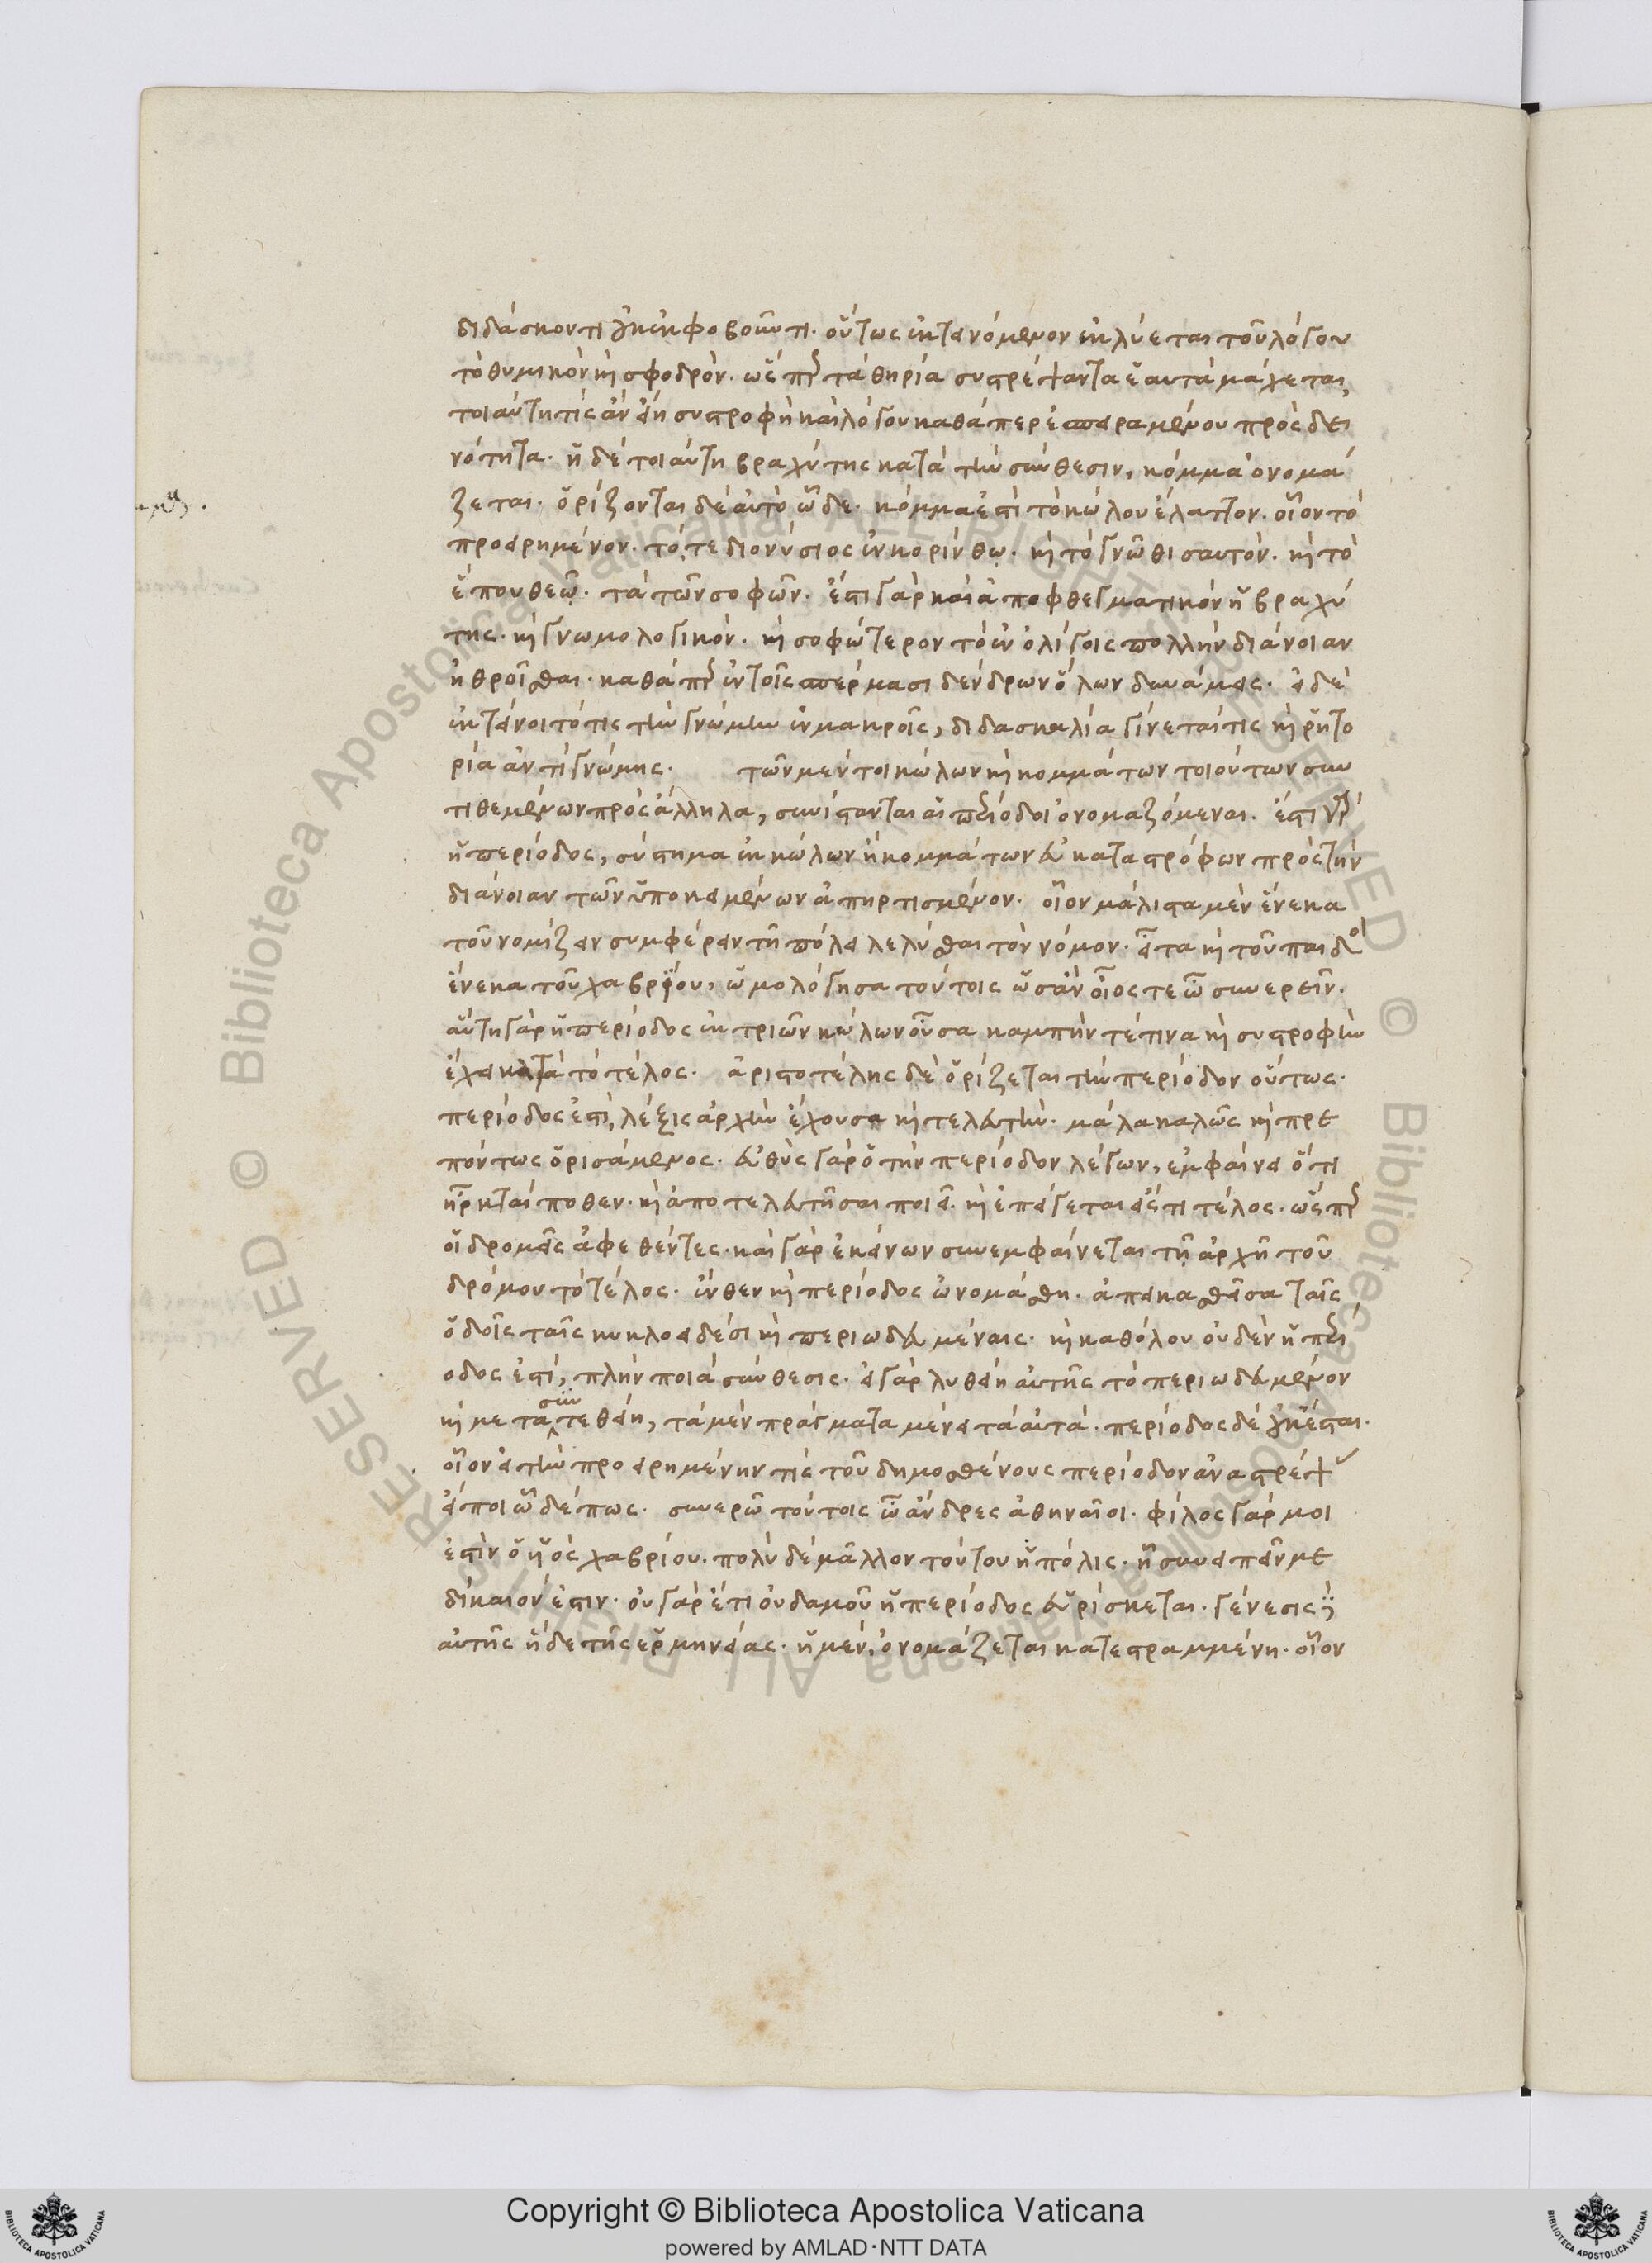 διδάσκοντι οὐκ ἐκφοβοῦντι. οὕτως ἐκτεινόμενον ἐκλύεται τοῦ λόγου
τὸ θυμικὸν καὶ σφοδρόν. ὥσπερ τὰ θηρία συστρέψαντα ἑαυτὰ μάχεται,
τοιαύτη τίς ἂν εἴη συστροφὴ καὶ λόγου καθάπερ ἐσπειραμένου πρὸς δει
νότητα. ἡ δὲ τοιαύτη βραχύτης κατὰ τὴν σύνθεσιν, κόμμα ὀνομά
ζεται. ὁρίζονται δὲ αὐτὸ ὧδε. κόμμα ἐστὶ τὸ κώλου ἔλαττον. οἷον τὸ
προειρημένον. τό, τε διονύσιος ἐν κορίνθῳ. καὶ τὸ γνῶθι σαυτόν. καὶ τὸ
ἕπου θεῷ. τὰ τῶν σοφῶν. ἔστι γὰρ καὶ ἀποφθεγματικὸν ἡ βραχύ
της. καὶ γνωμολογικόν. καὶ σοφώτερον τὸ ἐν ὀλίγοις πολλὴν διάνοιαν
ἠθροῖσθαι. καθάπερ ἐν τοῖς σπέρμασι δένδρων ὅλων δυνάμεις. εἰ δὲ
ἐκτείνοιτό τις τὴν γνώμην ἐν μακροῖς, διδασκαλία γίνεταί τις καὶ ῥητο
ρία ἀντὶ γνώμης. τῶν μέντοι κώλων καὶ κομμάτων τοιούτων συν
τιθεμένων πρὸς ἄλληλα, συνίστανται αἱ περίοδοι ὀνομαζόμεναι. ἔστι γὰρ
ἡ περίοδος, σύστημα ἐκ κώλων ἢ κομμάτων εὐκαταστρόφων πρὸς τὴν
διάνοιαν τῶν ὑποκειμένων ἀπηρτισμένον. οἷον μάλιστα μὲν ἕνεκα
τοῦ νομίζειν συμφέρειν τῇ πόλει λελύσθαι τὸν νόμον. εἶτα καὶ τοῦ παιδὸς
ἕνεκα τοῦ χαβρίου, ὡμολόγησα τούτοις ὡς ἂν οἷός τε ὦ συνερεῖν.
αὕτη γὰρ ἡ περίοδος ἐκ τριῶν κώλων οὖσα καμπήν τέ τινα καὶ συστροφὴν
ἔχει κατὰ τὸ τέλος. ἀριστοτέλης δὲ ὁρίζεται τὴν περίοδον οὕτως.
περίοδός ἐστι, λέξις ἀρχὴν ἔχουσα καὶ τελευτήν. μάλα καλῶς καὶ πρε
πόντως ὁρισάμενος. εὐθὺς γὰρ ὁ τὴν περίοδον λέγων, ἐμφαίνει ὅτι
ἦρκταί ποθεν. καὶ ἀποτελευτῆσαι ποιεῖ. καὶ ἐπείγεται εἴς τι τέλος. ὥσπερ
οἱ δρομεῖς ἀφεθέντες. καὶ γὰρ ἐκείνων συνεμφαίνεται τῇ ἀρχῇ τοῦ
δρόμου τὸ τέλος. ἔνθεν καὶ περίοδος ὠνομάσθη. ἀπεικασθεῖσα ταῖς
ὁδοῖς ταῖς κυκλοειδέσι καὶ περιωδευμέναις. καὶ καθόλου οὐδὲν ἡ περί
οδός ἐστι, πλὴν ποιὰ σύνθεσις. εἰ γὰρ λυθείη αὐτῆς τὸ περιωδευμένον
καὶ μετασυντεθείη, τὰ μὲν πράγματα μένει τὰ αὐτά. περίοδος δὲ οὐκ ἔσται.
οἷον εἰ τὴν προειρημένην τις τοῦ δημοσθένους περίοδον ἀναστρέψας
εἴποι ὧδέ πως. συνερῶ τούτοις ὦ ἄνδρες ἀθηναῖοι. φίλος γάρ μοι
ἐστὶν ὁ υἱὸς χαβρίου. πολὺ δὲ μᾶλλον τούτου ἡ πόλις. ᾗ συνειπεῖν με
δίκαιόν ἐστιν. οὐ γὰρ ἔτι οὐδαμοῦ ἡ περίοδος εὑρίσκεται. γένεσις δὲ
αὐτῆς ἥδε τῆς ἑρμηνείας. ἡ μέν, ὀνομάζεται κατεστραμμένη. οἷον
Copyright © Biblioteca Apostolica Vaticana
powered by AMLAD·NTT DATA